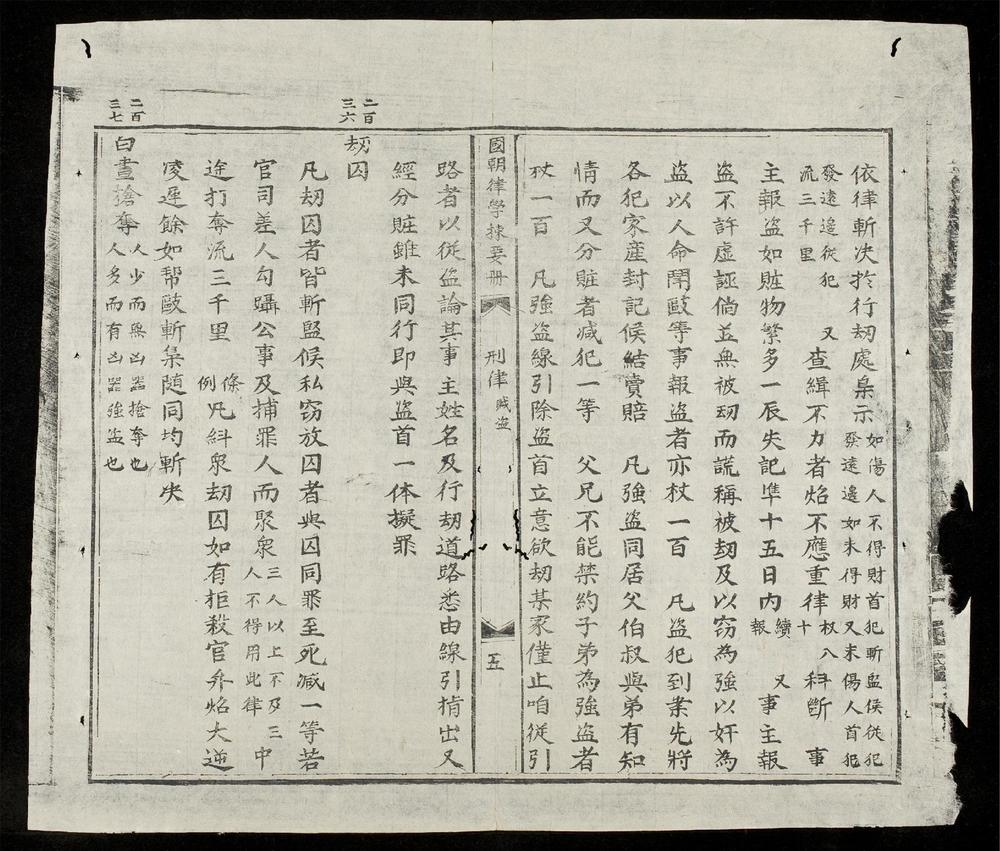 依律斬决於行刼處梟示如傷人不得財首犯斬监侯從犯
發遠邊如未得財又未傷人首犯
發遠邊從犯
流三千里 又查緝不力者炤不應重律杖八十科斷 事
主報盗如賍物繁多一辰失記凖十五日内續報 又事主報
盗不許虚誣倘並無被刼而謊称被刼及以窃為強以奸為
盗以人命鬧毆等事報盗者亦杖一百 凡盗犯到案先將
各犯家産封記候結賣賠 凡強盗同居父伯叔與弟有知
情而又分賍者减犯一等 父兄不能禁約子弟為強盗者
杖一百 凡強盗線引除盗首立意欲刼某家僅止咱從引
國朝律學揀要册 刑律 賊盗 五
路者以從盗論其事主姓名及行刼道路悉由線引指出又
經分賍雖未同行即與盗首一体擬罪
二百三六
刼囚
凡刼囚者皆斬监候私窃放囚者與囚同罪至死减一等若
官司差人勾躡公事及捕罪人而聚衆三人以上不及三人不得用此律中
途打奪流三千里 條例凡糾衆刼囚如有拒殺官弁炤大逆
凌遲餘如帮毆斬梟随同均斬决
二百三七
白晝搶奪人少而無凶器搶奪也
人多而有凶器強盗也